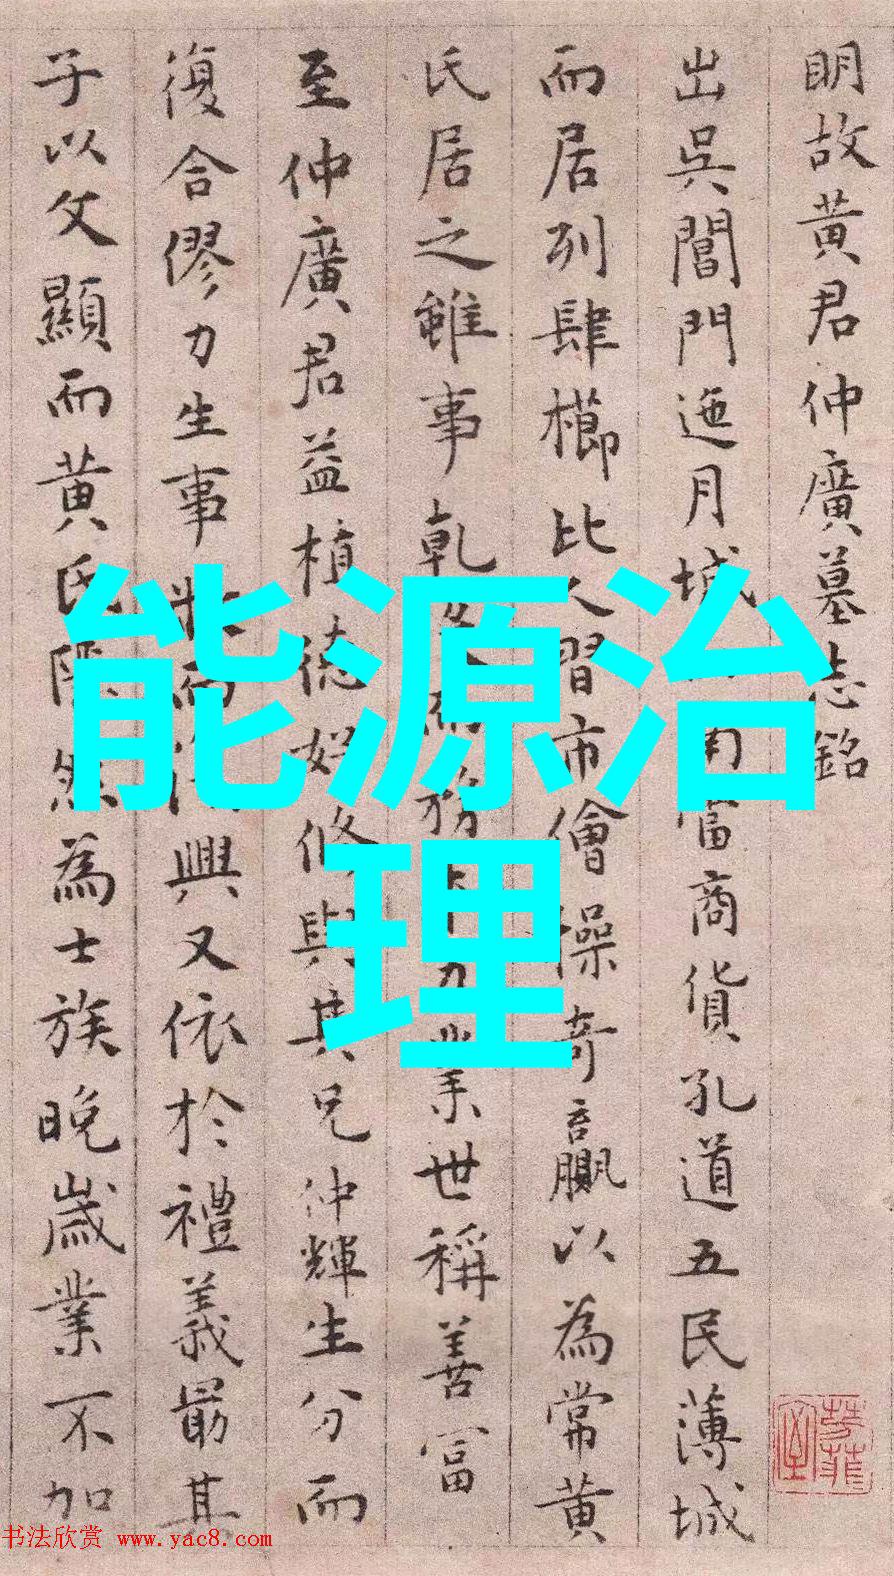 明故黄君仲廣墓志銘
出吳閶門迤月城南富商貨孔道五民薄城
而居列肆櫛比人習市儈操奇贏以為常黄
氏居之雖事乾務業世稱善富
至仲廣君益植德好修與其兄仲輝生分而
復合僇力生事而興又依於禮義最其
子以文顯而黄氏隱然為士族晚歲業不加
能源治
理
书法欣赏 www.yac8.com